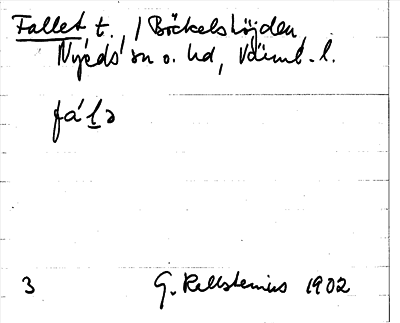 Fallet t., / Böckelshöjden,
Nyeds sn o. hd, Värml. l.
fá l̲ə
3 G. Kallstenius 1902